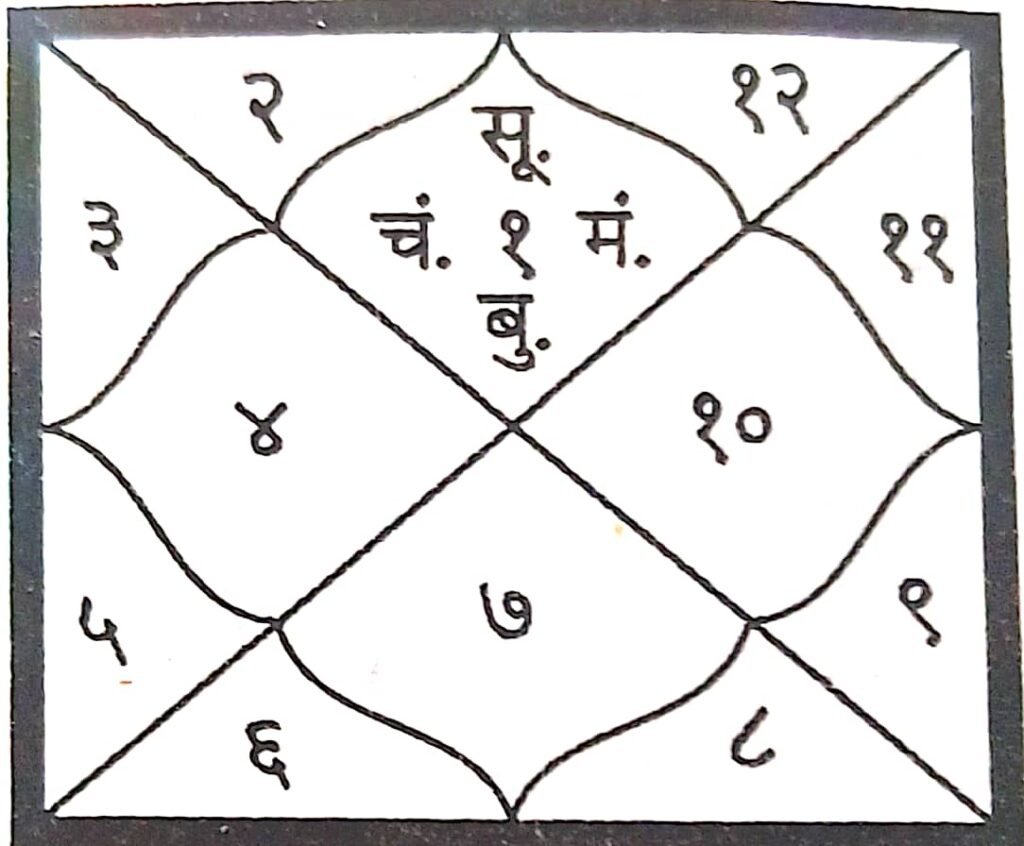 २ १२
सू.
३ चं. १ मं. ११
बु.
४ १०
५ ७ ९
६ ८